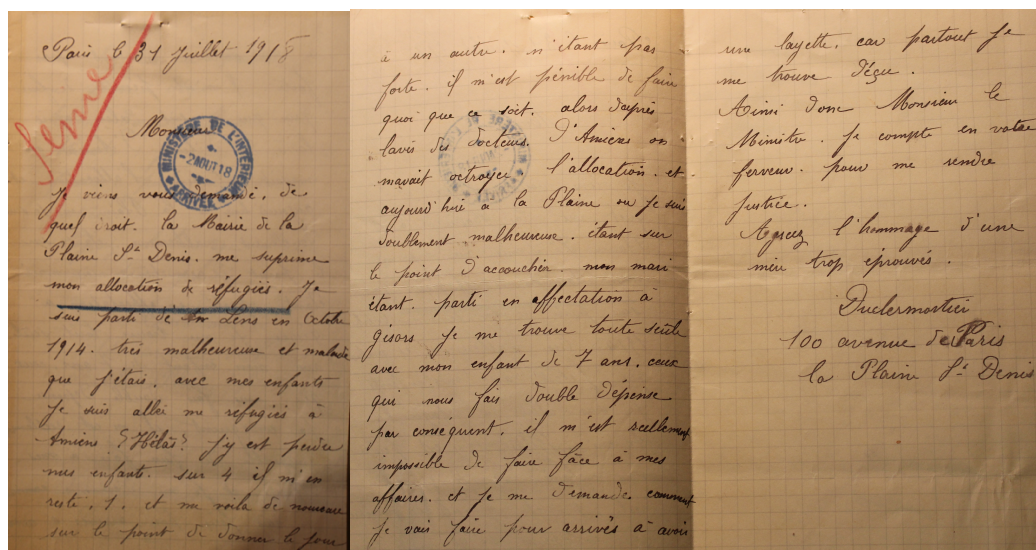 Paris le 31 juillet 1918
Seine
Monsieur
MINISTERE DE L'INTERIEUR
-2 AOUT 18
ARRIVEE
Je viens vous demandé, de
quel droit. la Mairie de la
Plaine St Denis. me suprime
mon allocation de réfugiés. Je
suis parti de Lens en Octobre
1914. très malheureuse et malade
que j'étais. avec mes enfants
Je suis allée me réfugiés à
Amiens ? Hélas ? j'y est perdue
mes enfants. sur 4 il m'en
reste, 1. et me voila de nouveau
sur le point de donner le jour
à un autre. n'étant pas
forte. il m'est pénible de faire
quoi que ce soit. alors d'après
lavis des docteurs. d'Amiens on
mavait octroyer l'allocation. et
aujourd'hui à la Plaine ou je suis
doublement malheureuse. étant sur
le point d'accoucher. mon mari
étant. parti en affectation à
gisors je me trouve toute seule
avec mon enfant de 7 ans. ceux
qui nous fais double dépense
par conséquent. il m'est réellement
impossible de faire fâce à mes
affaires. et je me demande. comment
je vais faire pour arrivés à avoir
une layette. car partout je
me trouve déçu.
Ainsi donc Monsieur le
Ministre. je compte en votre
ferveur. pour me rendre
justice.
Agréez l'hommage d'une
mère trop éprouvés.
100 avenue de Paris
la Plaine St Denis